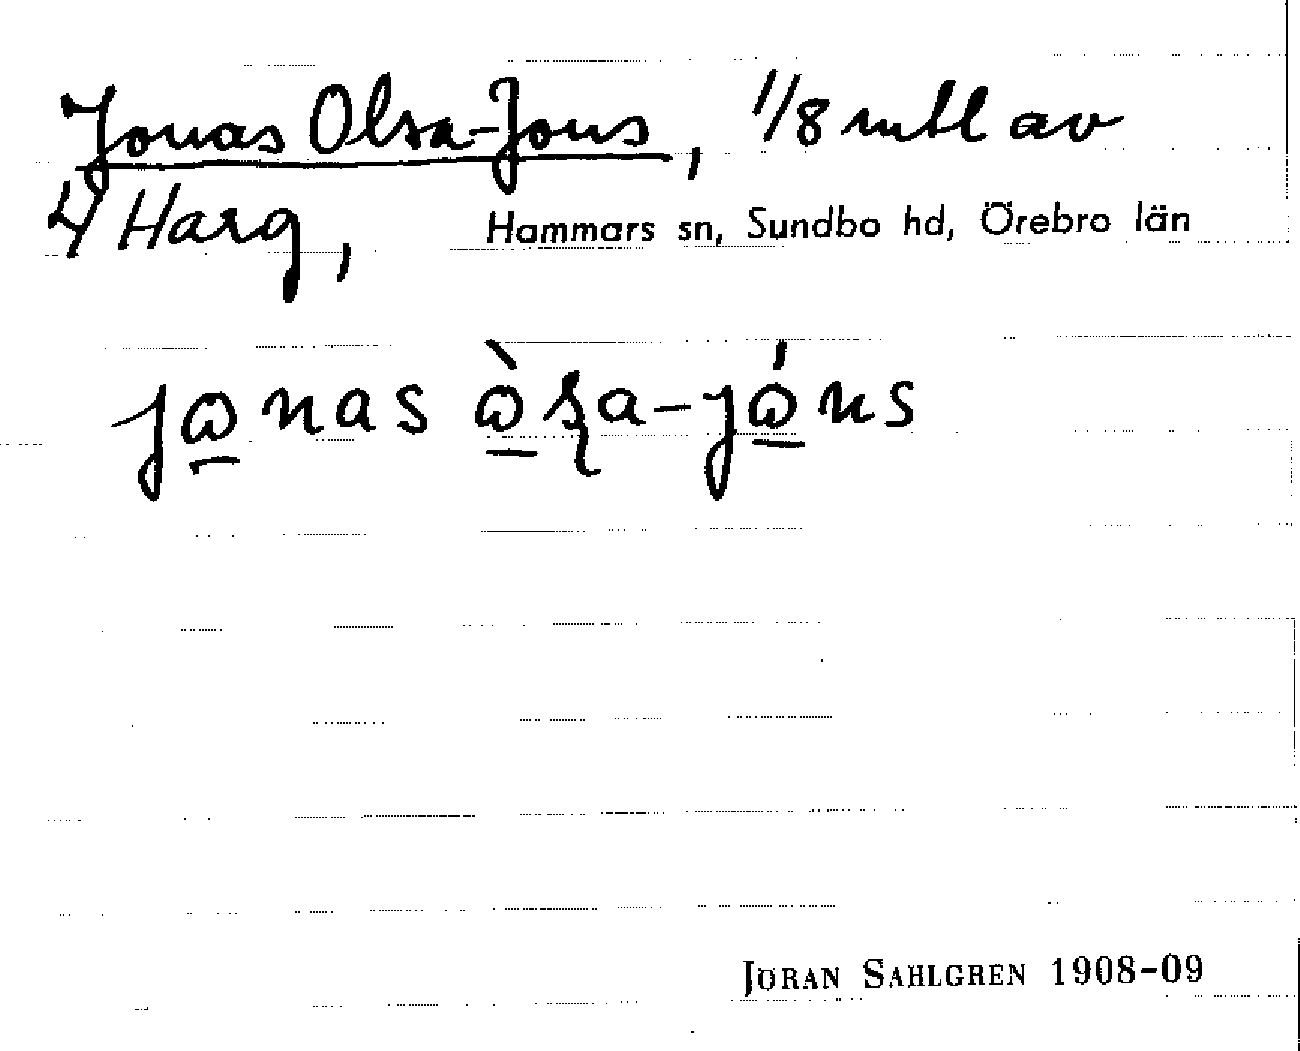 Jonas Olsa-Jons, 1/8 mtl av
4/ Harg, Hammars sn, Sundbo hd, Örebro län
jω̲nas ὼ̲ʂa-jώ̲ns
JÖRAN SAHLGREN 1908-09